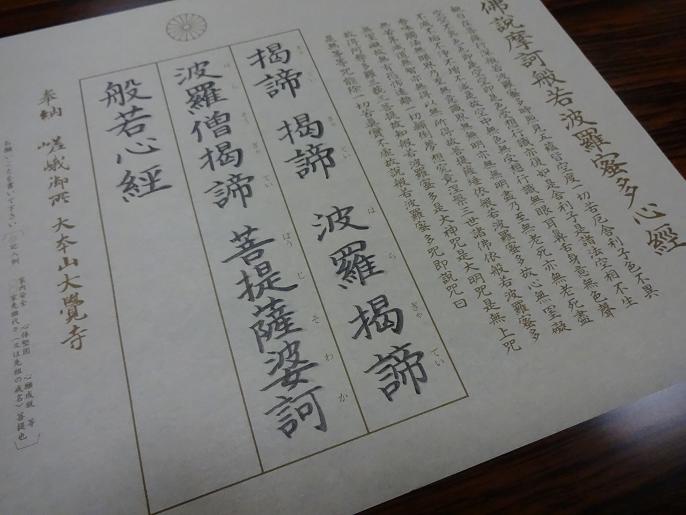 佛説摩訶般若波羅蜜多心經
觀自在菩薩行深般若波羅蜜多時照見五蘊皆空度一切苦厄舍利子色不異
空空不異色色即是空空即是色受想行識亦復如是舍利子是諸法空相不生
不滅不垢不淨不增不減是故空中無色無受想行識無眼耳鼻舌身意無色聲
香味觸法無眼界乃至無意識界無無明亦無無明盡乃至無老死亦無老死盡
無苦集滅道無智亦無得以無所得故菩提薩埵依般若波羅蜜多故心無罣礙
無罣礙故無有恐怖遠離一切顛倒夢想究竟涅槃三世諸佛依般若波羅蜜多
故得阿耨多羅三藐三菩提故知般若波羅蜜多是大神咒是大明咒是無上咒
是無等等咒能除一切苦眞實不虚故説般若波羅蜜多咒即説咒曰
揭諦 揭諦 波羅揭諦
波羅僧揭諦 菩提薩婆訶
般若心經
奉納 嵯峨御所 大本山大覺寺
お願いごとを書いて下さい。
記入例
家内安全 心体堅固 心願成就 等
家先祖代々(又は先祖の戒名)菩提也